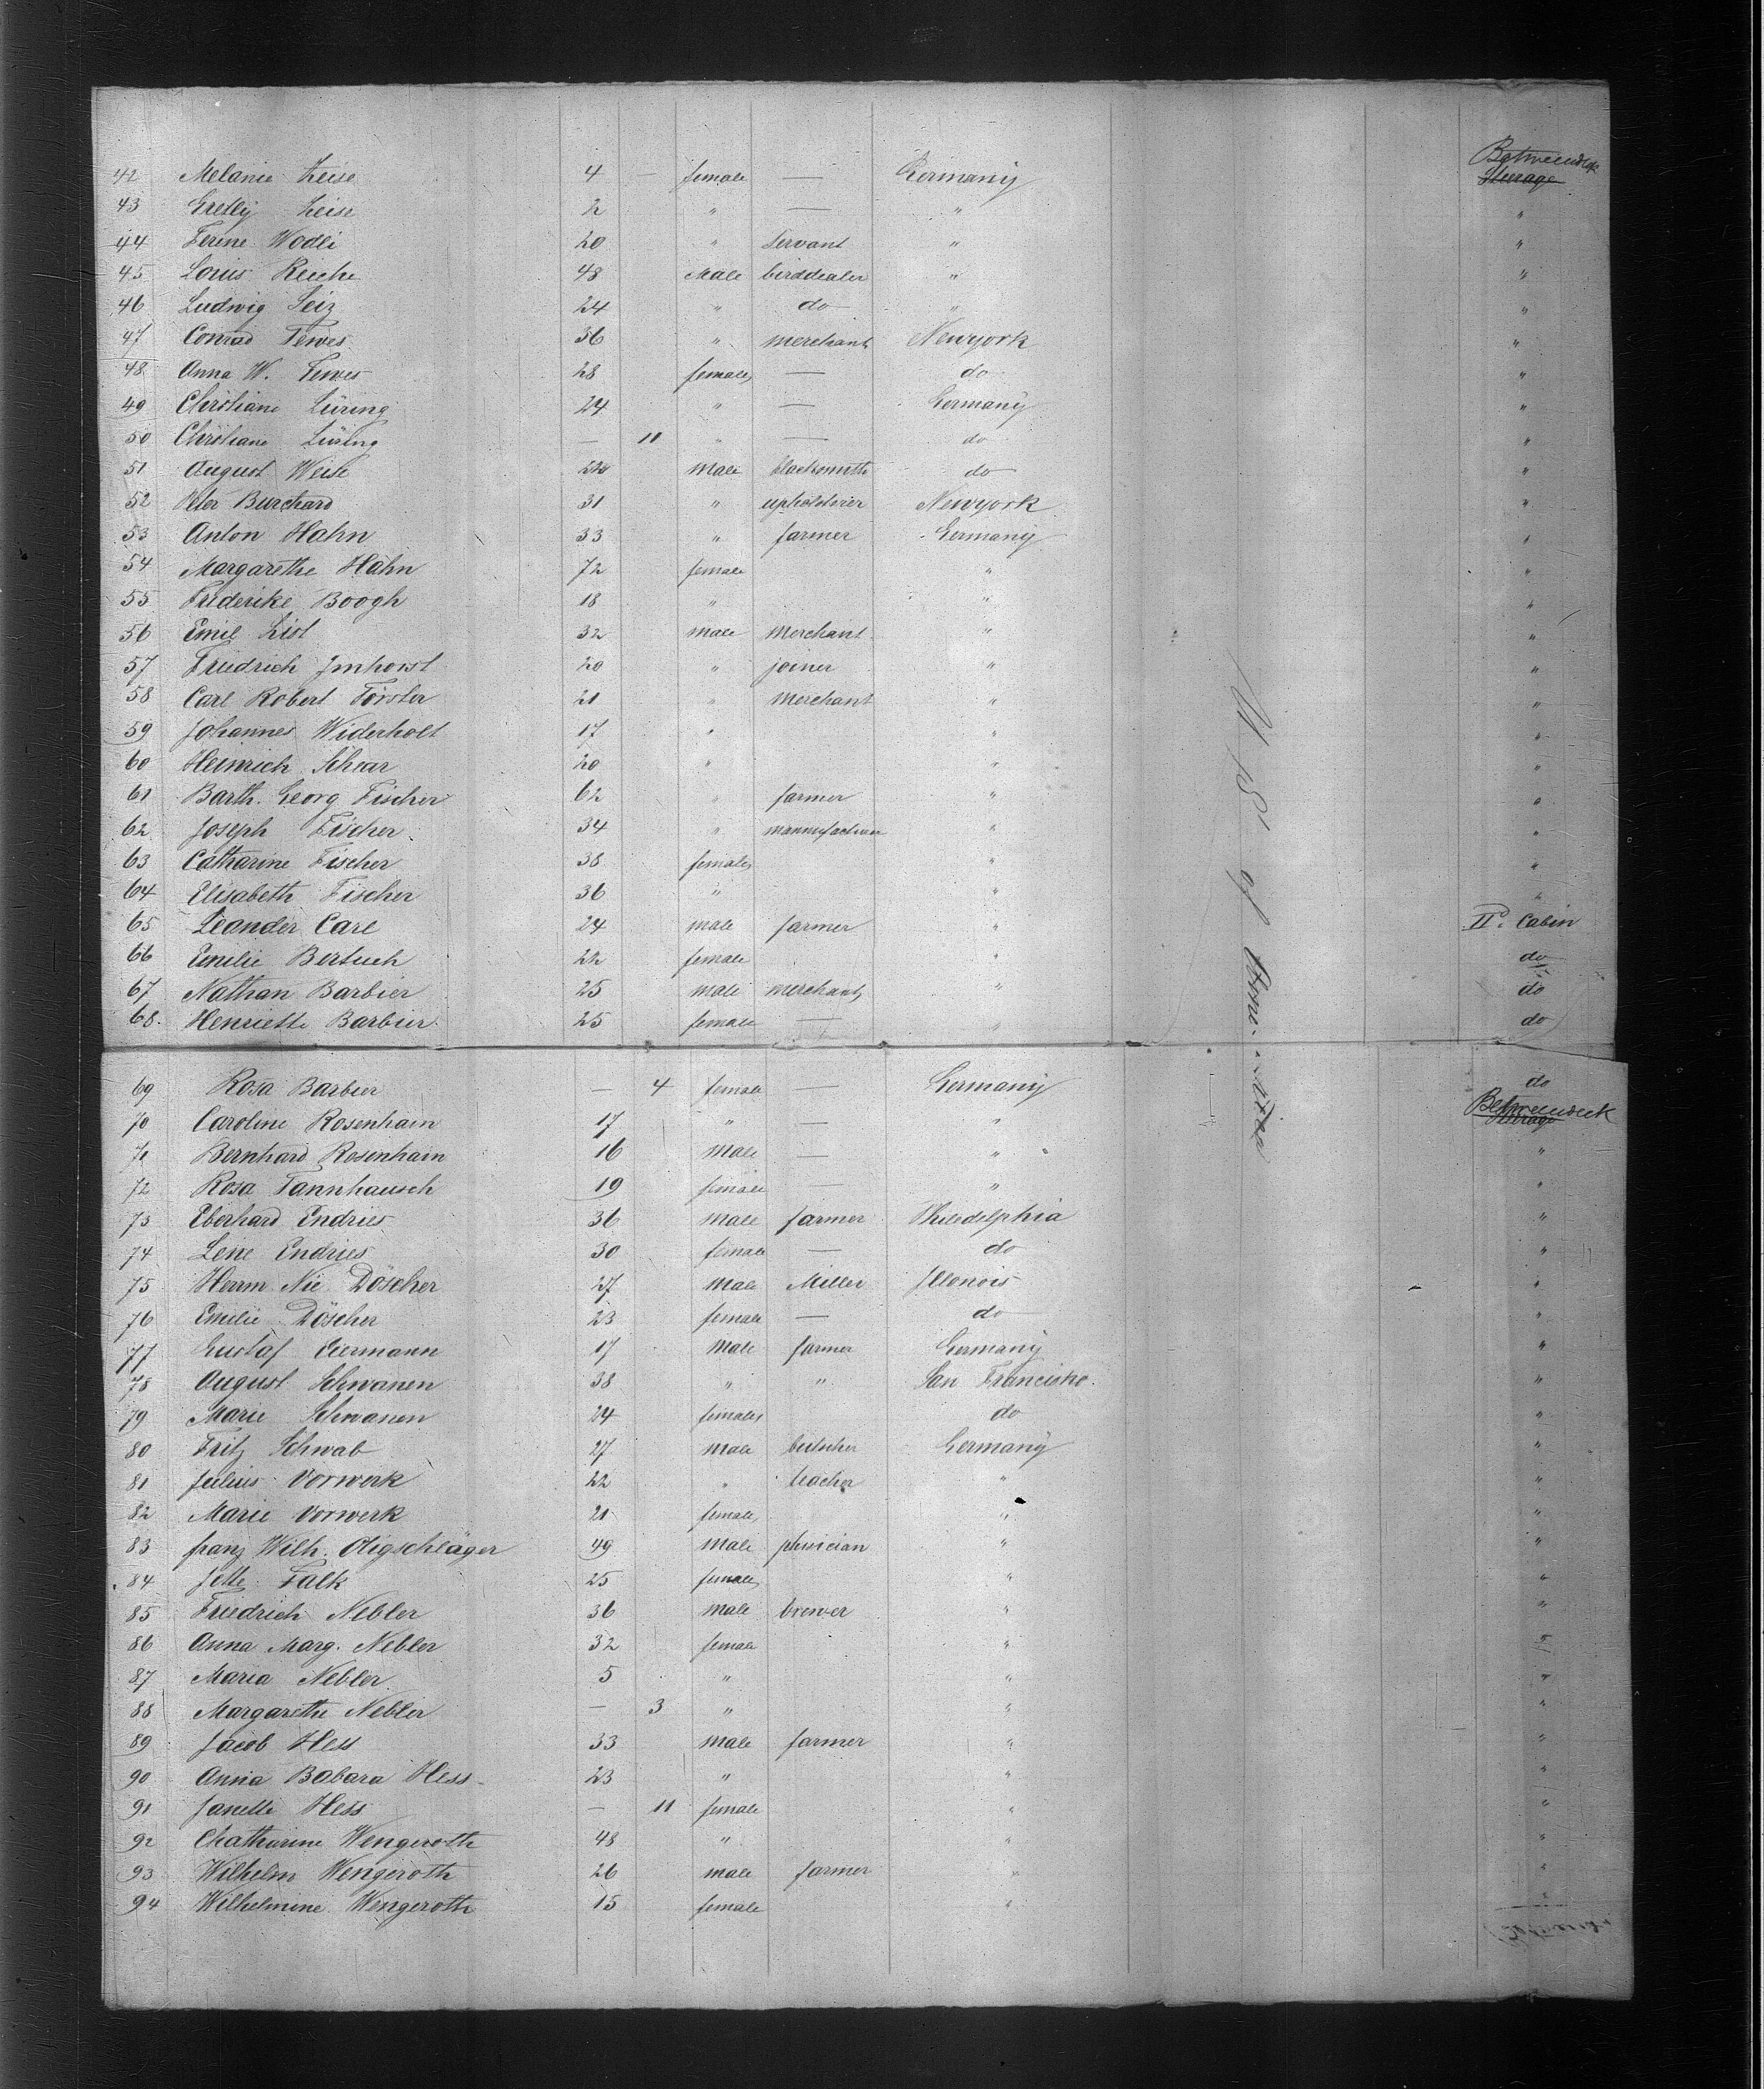 42 Melanie Zeise 4 — female — Germany Betweendeck Sterage
43 Gretly Zeise 2 " — " "
44 Ferine Wodli 20 " Servant " "
45 Louis Reiche 48 Male birddealer " "
46 Ludwig Seiz 24 " do " "
47 Conrad Tewes 36 " merchant Newyork "
48 Anna W. Tewes 28 female — do "
49 Christiane Lüring 24 " — Germany "
50 Christiane Lüring — 11 " — do "
51 August Weise male blacksmith do "
52 Peter Burchard 31 " upholsterer Newyork "
53 Anton Hahn 33 " farmer Germany "
54 Margarethe Hahn 72 female " "
55 Friderike Boogh 18 " " "
56 Emil List 32 male Merchant " "
57 Friedrich Imhorst 20 " joiner " "
58 Carl Robert Förster 21 " Merchant " "
59 Johannes Widerholt 17 " " "
60 Heinrich Schear 20 " " "
61 Barth. Georg Fischer 62 " farmer " "
62 Joseph Fischer 34 " " "
63 Catharine Fischer 38 female " "
64 Elisabeth Fischer 36 " " "
65 Leander Carl 24 male farmer " II. Cabin
66 Emilie Bertuch 22 female " do
67 Nathan Barbier 25 male merchant " do
68. Henriette Barbier 25 female — " do
U St of
69 Rosa Barbier — 4 female — Germany do
70 Caroline Rosenhain 17 " — " Betweendeck Sterage
71 Bernhard Rosenhain 16 Male — " "
72 Rosa Tannhausch 19 female — " "
73 Eberhard Endries 36 Male farmer Philedelphia "
74 Lene Endries 30 female — do "
75 Herm. Nic. Döscher 27 Male Miller Illonois "
76 Emilie Döscher 23 female — do "
77 Gustaf Eiermann 17 Male farmer Germany "
78 August Schwanen 38 " " San Francisko. "
79 Marie Schwanen 24 female do "
80 Fritz Schwab 27 Male butscher Germany "
81 Julius Vorwerk 22 " teacher " "
82 Marie Vorwerk 21 female " "
83 franz Wilh. Oligschläger 49 Male phisician " "
84 Jette Falk 25 female " "
85 Friedrich Nebler 36 Male brewer " "
86 Anna Marg. Nebler 32 female " "
87 Maria Nebler 5 " " "
88 Margarethe Nebler — 3 " " "
89 Jacob Hess 33 Male farmer " "
90 Anna Babara Hess 23 " " "
91 Janette Hess — 11 female " "
92 Chatharine Wengeroth 48 " " "
93 Wilhelm Wengeroth 26 male farmer " "
94 Wilhelmine Wengeroth 15 female " "